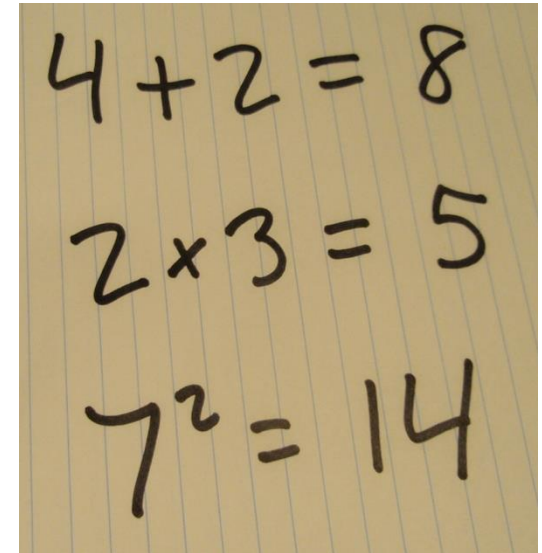 4 + 2 = 8
2 × 3 = 5
7² = 14